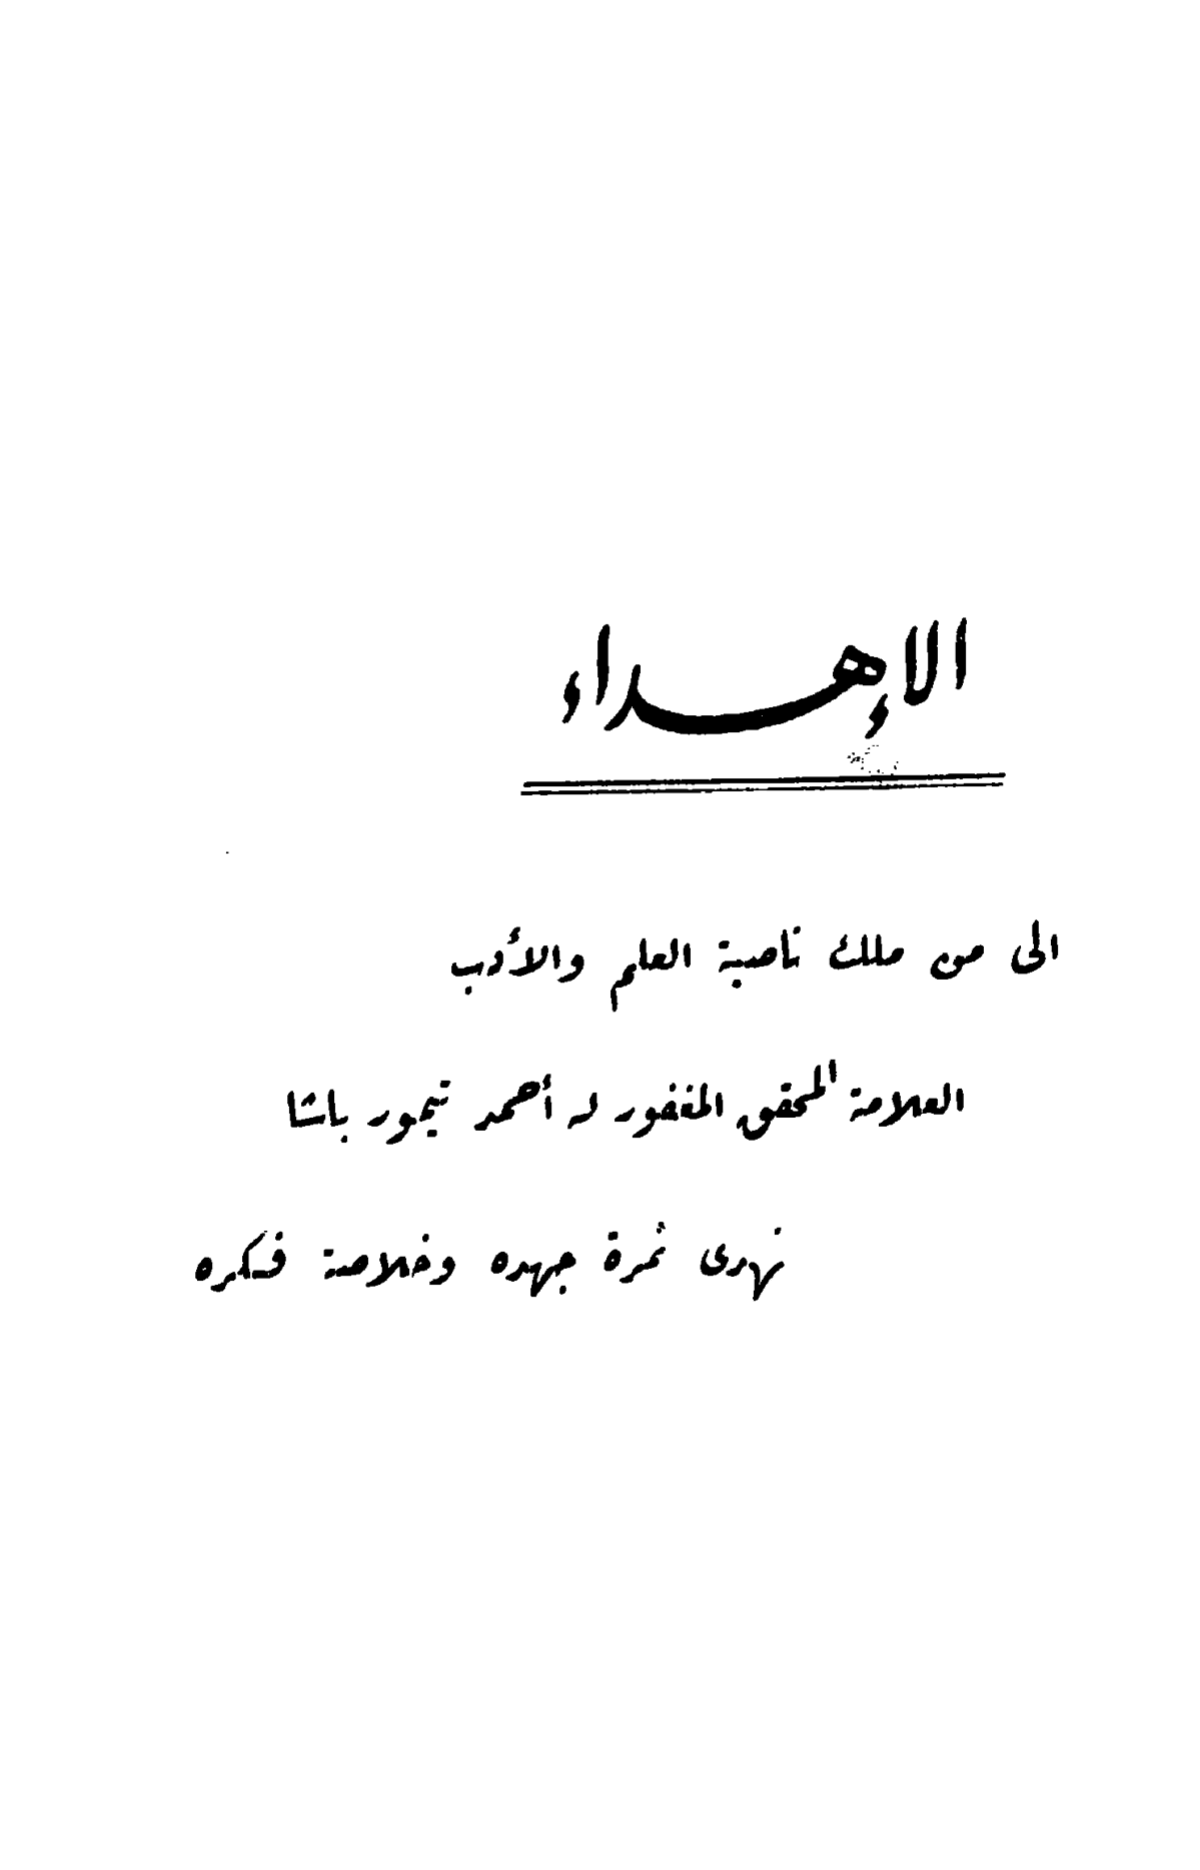 الإهداء
الى من ملك ناصية العلم والأدب
العلامة المحقق المغفور له أحمد تيمور باشا
نهدى ثمرة جهده وخلاصة فكره